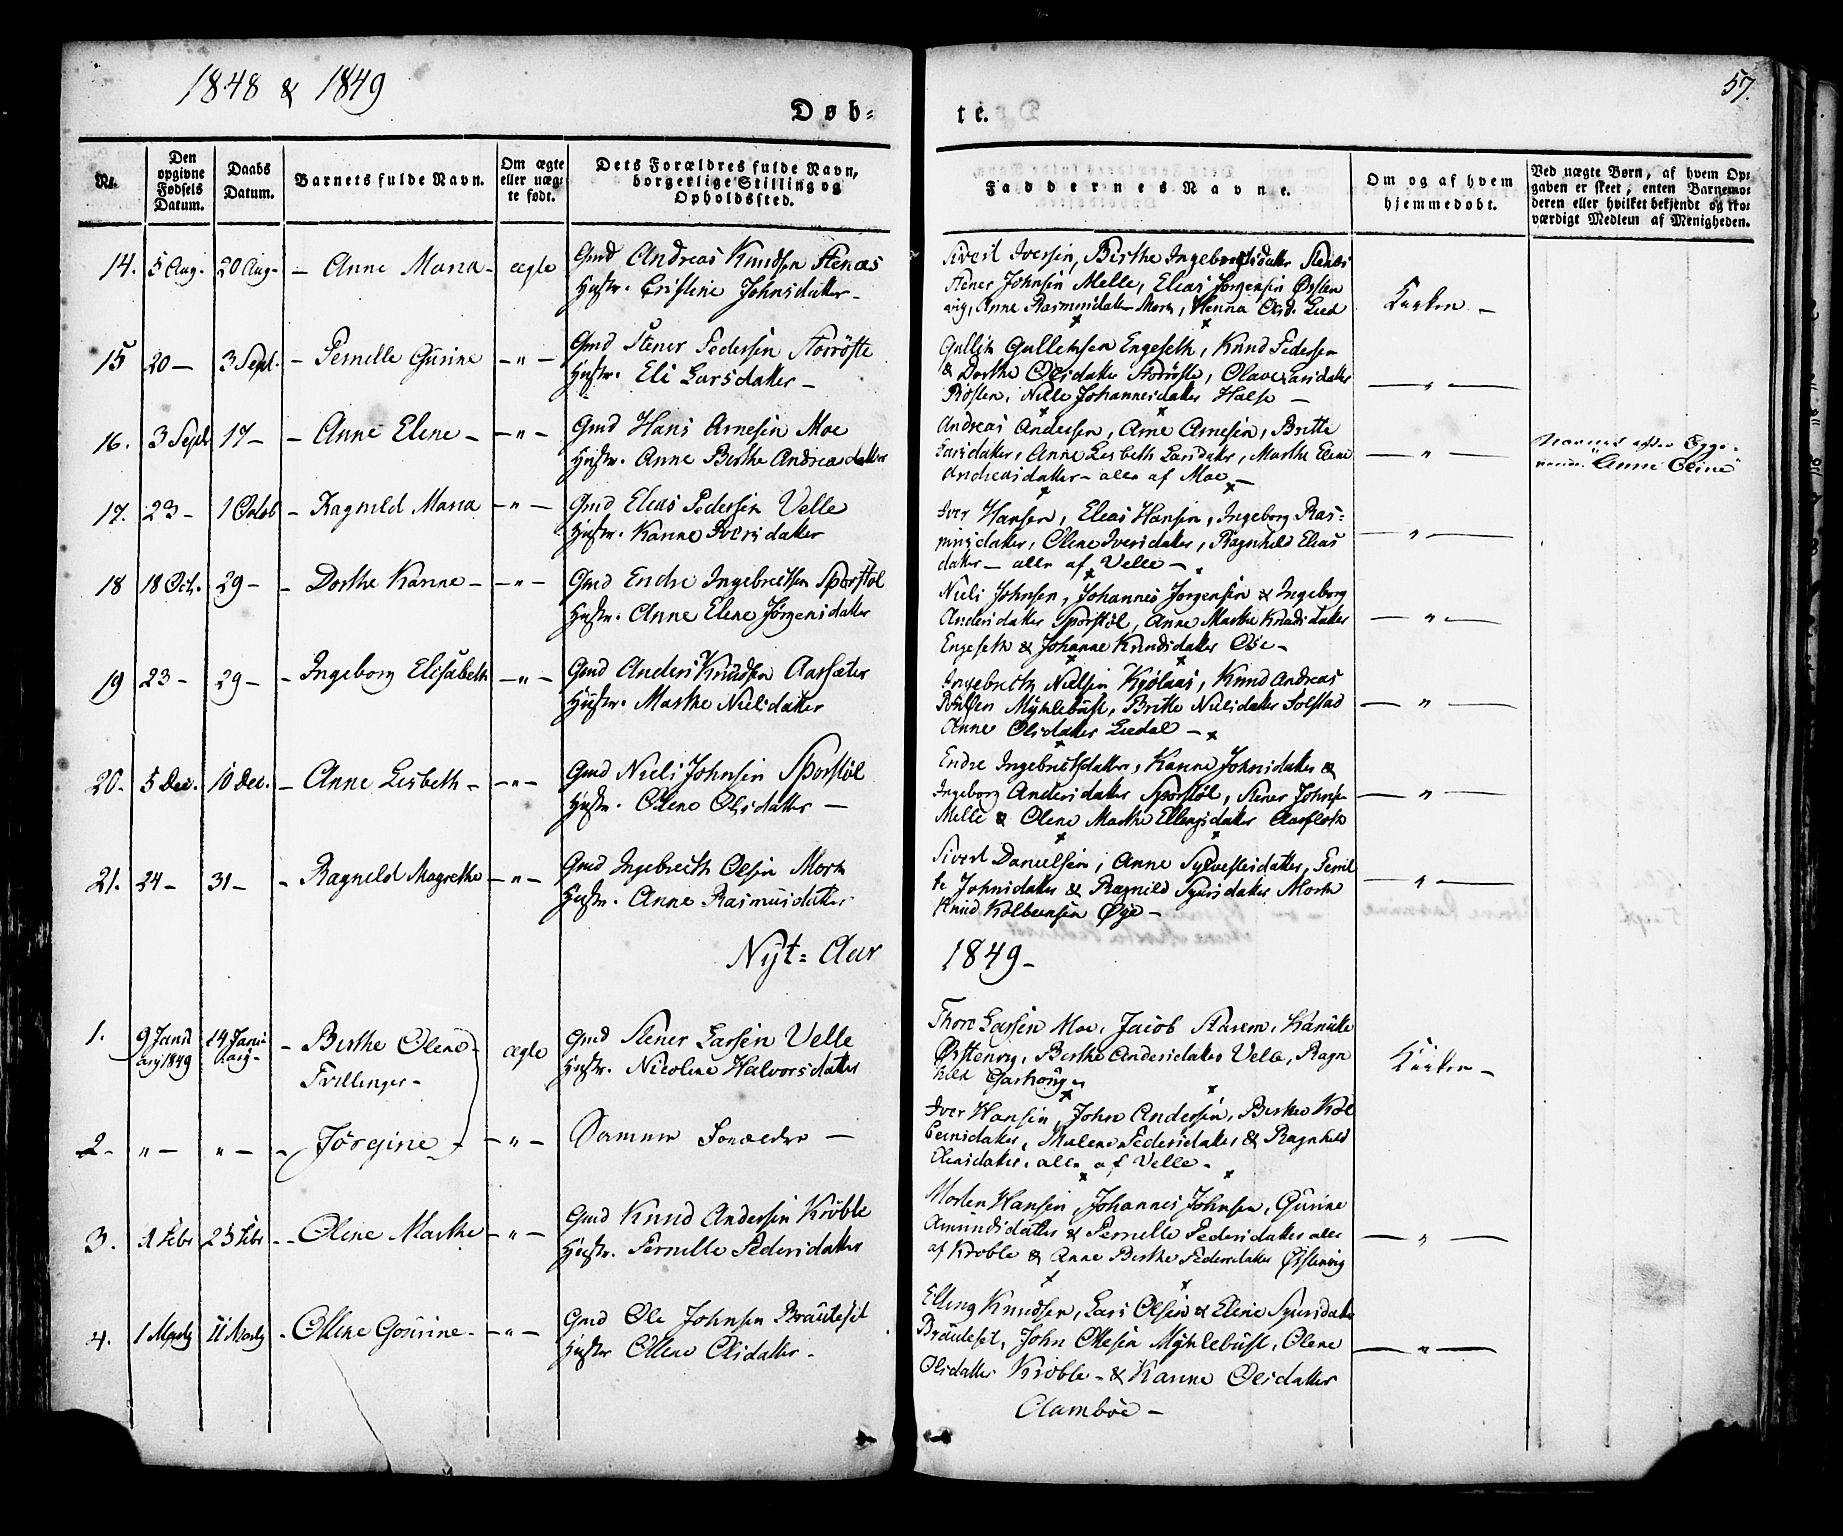 1848 & 1849
57.
Døb-
te.
Nr.
Den opgivne Fødsels Datum.
Daabs Datum.
Barnets fulde Navn.
Om ægte eller uægte født.
Dets Forældres fulde Navn, borgerlige Stilling og Opholdssted.
Faddernes Navne.
Om og af hvem hjemmedøbt.
Ved uægte Børn, af hvem Opgaven er skeet, enten Barnemoderen eller hvilket bekjendt og troværdigt Medlem af Menigheden.
14. 5 Aug. 20 Aug. - Anne Maria - ægte Gmd Andreas Knudsen Stenæs
Hustr. Cristine Johnsdatter -
Sivert Iversen, Birthe Ingebrigtsdatter Stenæs
Stener Johnsen Melle, Elias Jørgensen Østen
vig, Anne Rasmusdatter Mork, Hanna Olsd. Lied
Kirken -
15 20 - 3 Sept. - Pernille Gurine - " - Gmd Stener Pedersen Storøste
Hustr. Eli Larsdatter -
Gullik Gulleksen Engeseth, Knud Pedersen
& Dorthe Olsdatter Storøste, Olave Larsdatter
Røsten, Nille Johannesdatter Halse -
- " -
16. 3 Sept 17 - - Anne Elene - - " - Gmd Hans Arnesen Moe
Hustr. Anne Birthe Andreasdatter
Andreas Andersen, Arne Arnesen, Britte
Larsdatter, Anne Lisbeth Larsdatter, Marthe Elene
Andreasdatter - alle af Moe -
- " -
"Anne Eline"
17. 23 - 1 Octob - Ragnild Maria - " - Gmd Elias Pedersen Velle
Hustr. Hanne Iversdatter
Iver Hansen, Elias Hansen, Ingeborg Ras=
musdatter, Oline Iversdatter, Ragnhild Elias
datter - alle af Velle -
- " -
18 18 Oct. 29 - - Dorthe Hanne - - " - Gmd Endre Ingebretsen Sporstøl
Hustr. Anne Elene Jørgensdatter
Niels Johnsen, Johannes Jørgensen & Ingeborg
Andersdatter Sporstøl, Anne Marthe Knudsdatter
Engeseth & Johanne Knudsdatter Øie -
- " -
19 23 - 29 - - Ingeborg Elisabeth - " - Gmd Anders Knudsen Aarsæter
Hustr. Marthe Nielsdatter
Ingebreth Nielsen Kjølaas, Knud Andreas
Myklebust, Britte Nielsdatter Solstad
Anne Olsdatter Liedal -
- " -
20. 5 Dec. 10 Dec. - Anne Lisbeth - - " - Gmd Niels Johnsen Sporstøl
Hustr. Oline Olsdatter -
Endre Ingebretsdatter, Hanne Johnsdatter &
Ingeborg Andersdatter Sporstøl, Stener Johns
Melle & Oline Marthe Ellingsdatter Aarfloth
- " -
21. 24 - 31 - - Ragnild Magrethe - " - Gmd Ingebreth Olsen Mork
Hustr. Anne Rasmusdatter
Sivert Danielsen, Anne Sylvestersdatter, Pernil
le Johnsdatter & Ragnild Syversdatter Mork
Knud Kolbensen Øye -
- " -
Nyt=Aar
1849 -
1. 9 Janu 14 Janu - Birthe Oline - ægte Gmd Stener Larsen Velle
ary 1849 ary - Tvillinger - Hustr. Nicoline Halvorsdatter
Thore Larsen Moe, Jacob Starem, Hanike
Østenvig, Birthe Andersdatter Velle, Ragn
hild
Kirken -
2 - " - " - - Jørgine - - " - Samme Forældre -
Iver Hansen, John Andersen, Birthe Kol
bensdatter, Malene Pedersdatter & Ragnhild
Eliasdatter, alle af Velle -
3. 1 Febr 25 Febr - Oline Marthe - " - Gmd Knud Andersen Krøble
Hustr. Pernille Pedersdatter
Morten Hansen, Johannes Johnsen, Gurine
Amundsdatter & Pernille Pedersdatter alle
af Krøble & Anne Birthe Pedersdatter Østenvig
- " -
4. 1 Marts 11 Marts - Oline Gourine - - " - Gmd Ole Johnsen Brauteset
Hustr Oline Olsdatter -
Elling Knudsen, Lars Olsen & Eline Syversdatter
Brauteset, John Olesen Myklebust, Oline
Olsdatter Krøble - & Hanne Olsdatter
Aambøe -
- " -